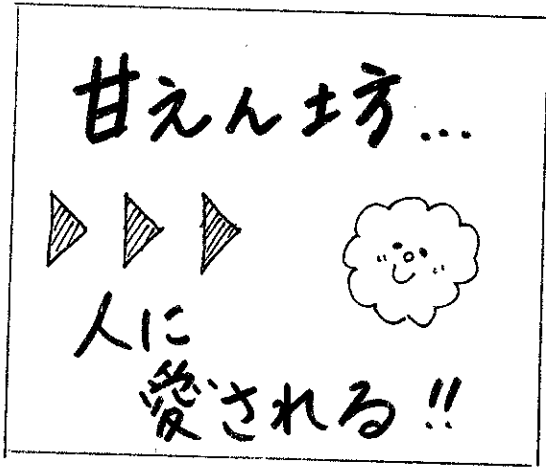 甘えん坊...
人に
愛される!!